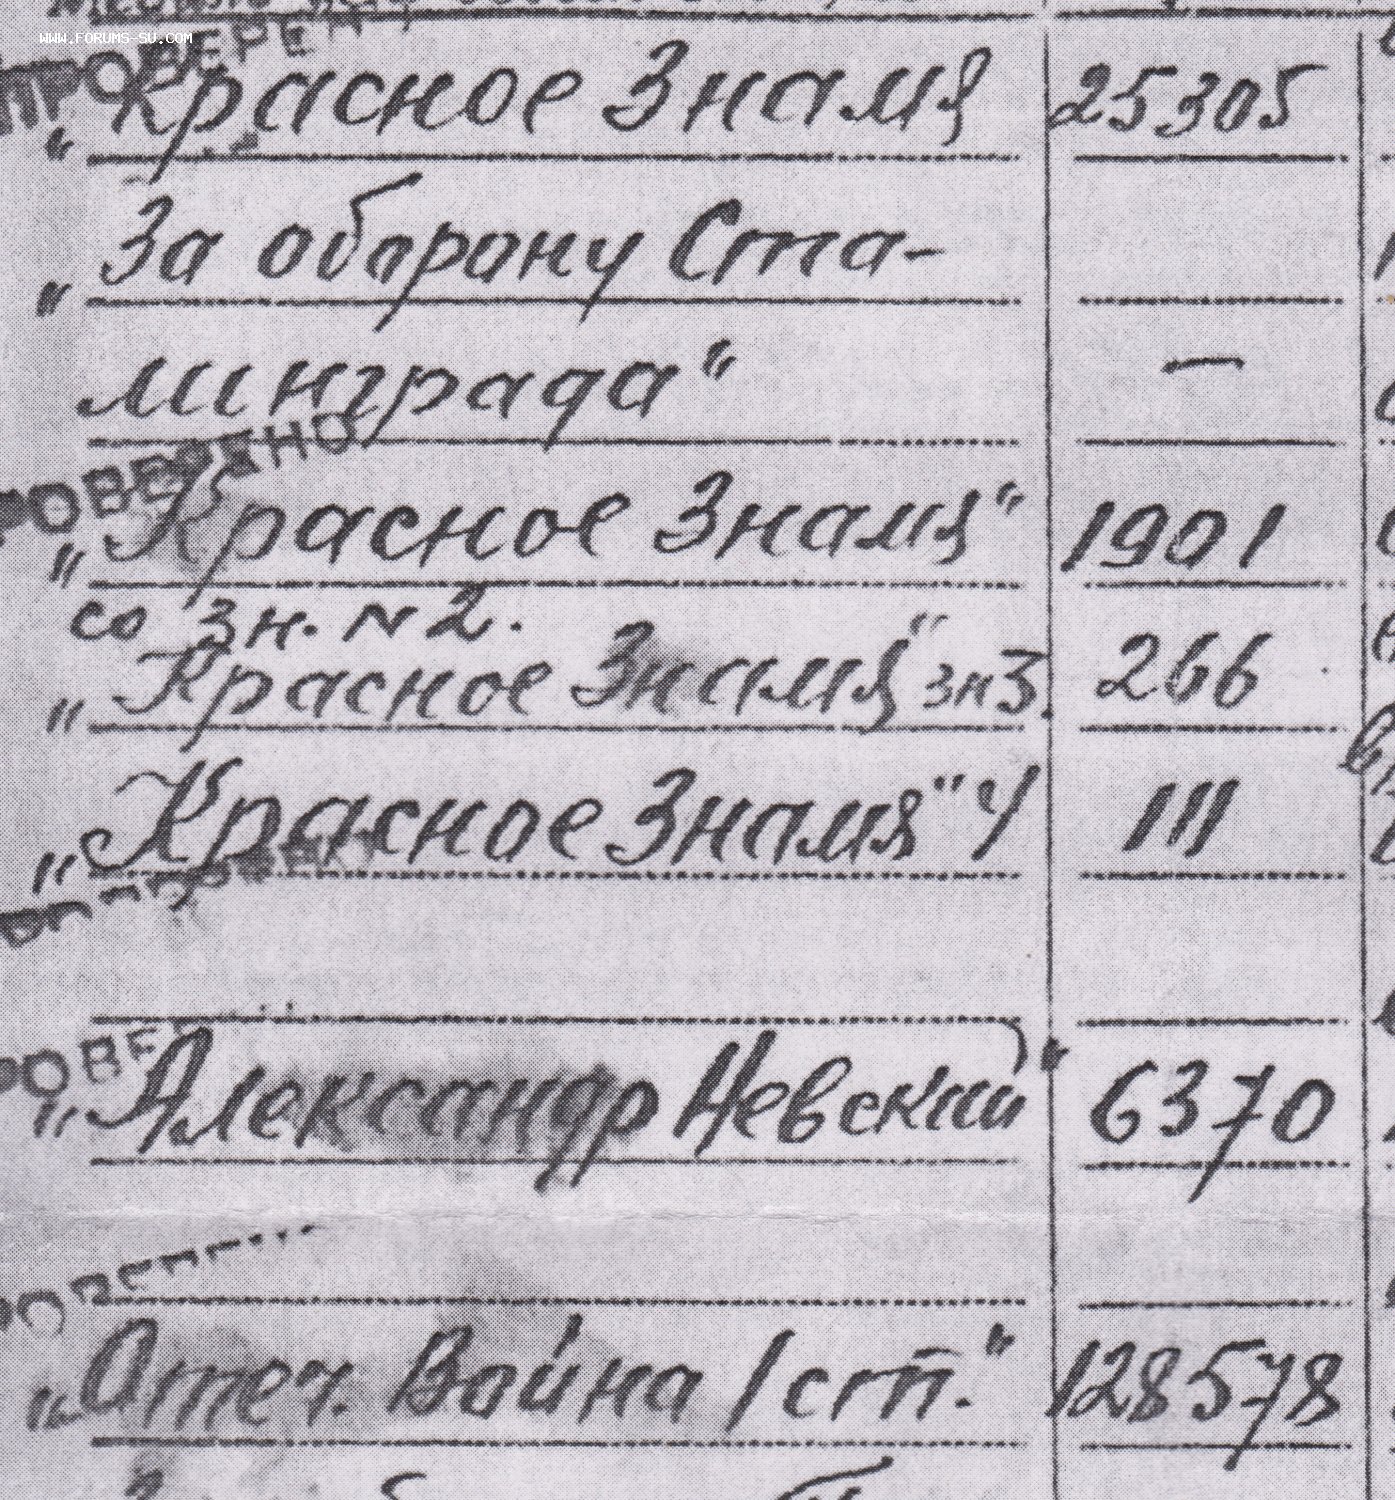 WWW.FORUMS-SU.COM
„Красное Знамя 25305
„За оборону Ста-
линграда“ —
„Красное Знамя“ 1901
со зн. № 2.
„Красное Знамя“ зн 3. 266
„Красное Знамя“ 4 111
„Александр Невский“ 6370
„Отеч. Война I ст.“ 128578